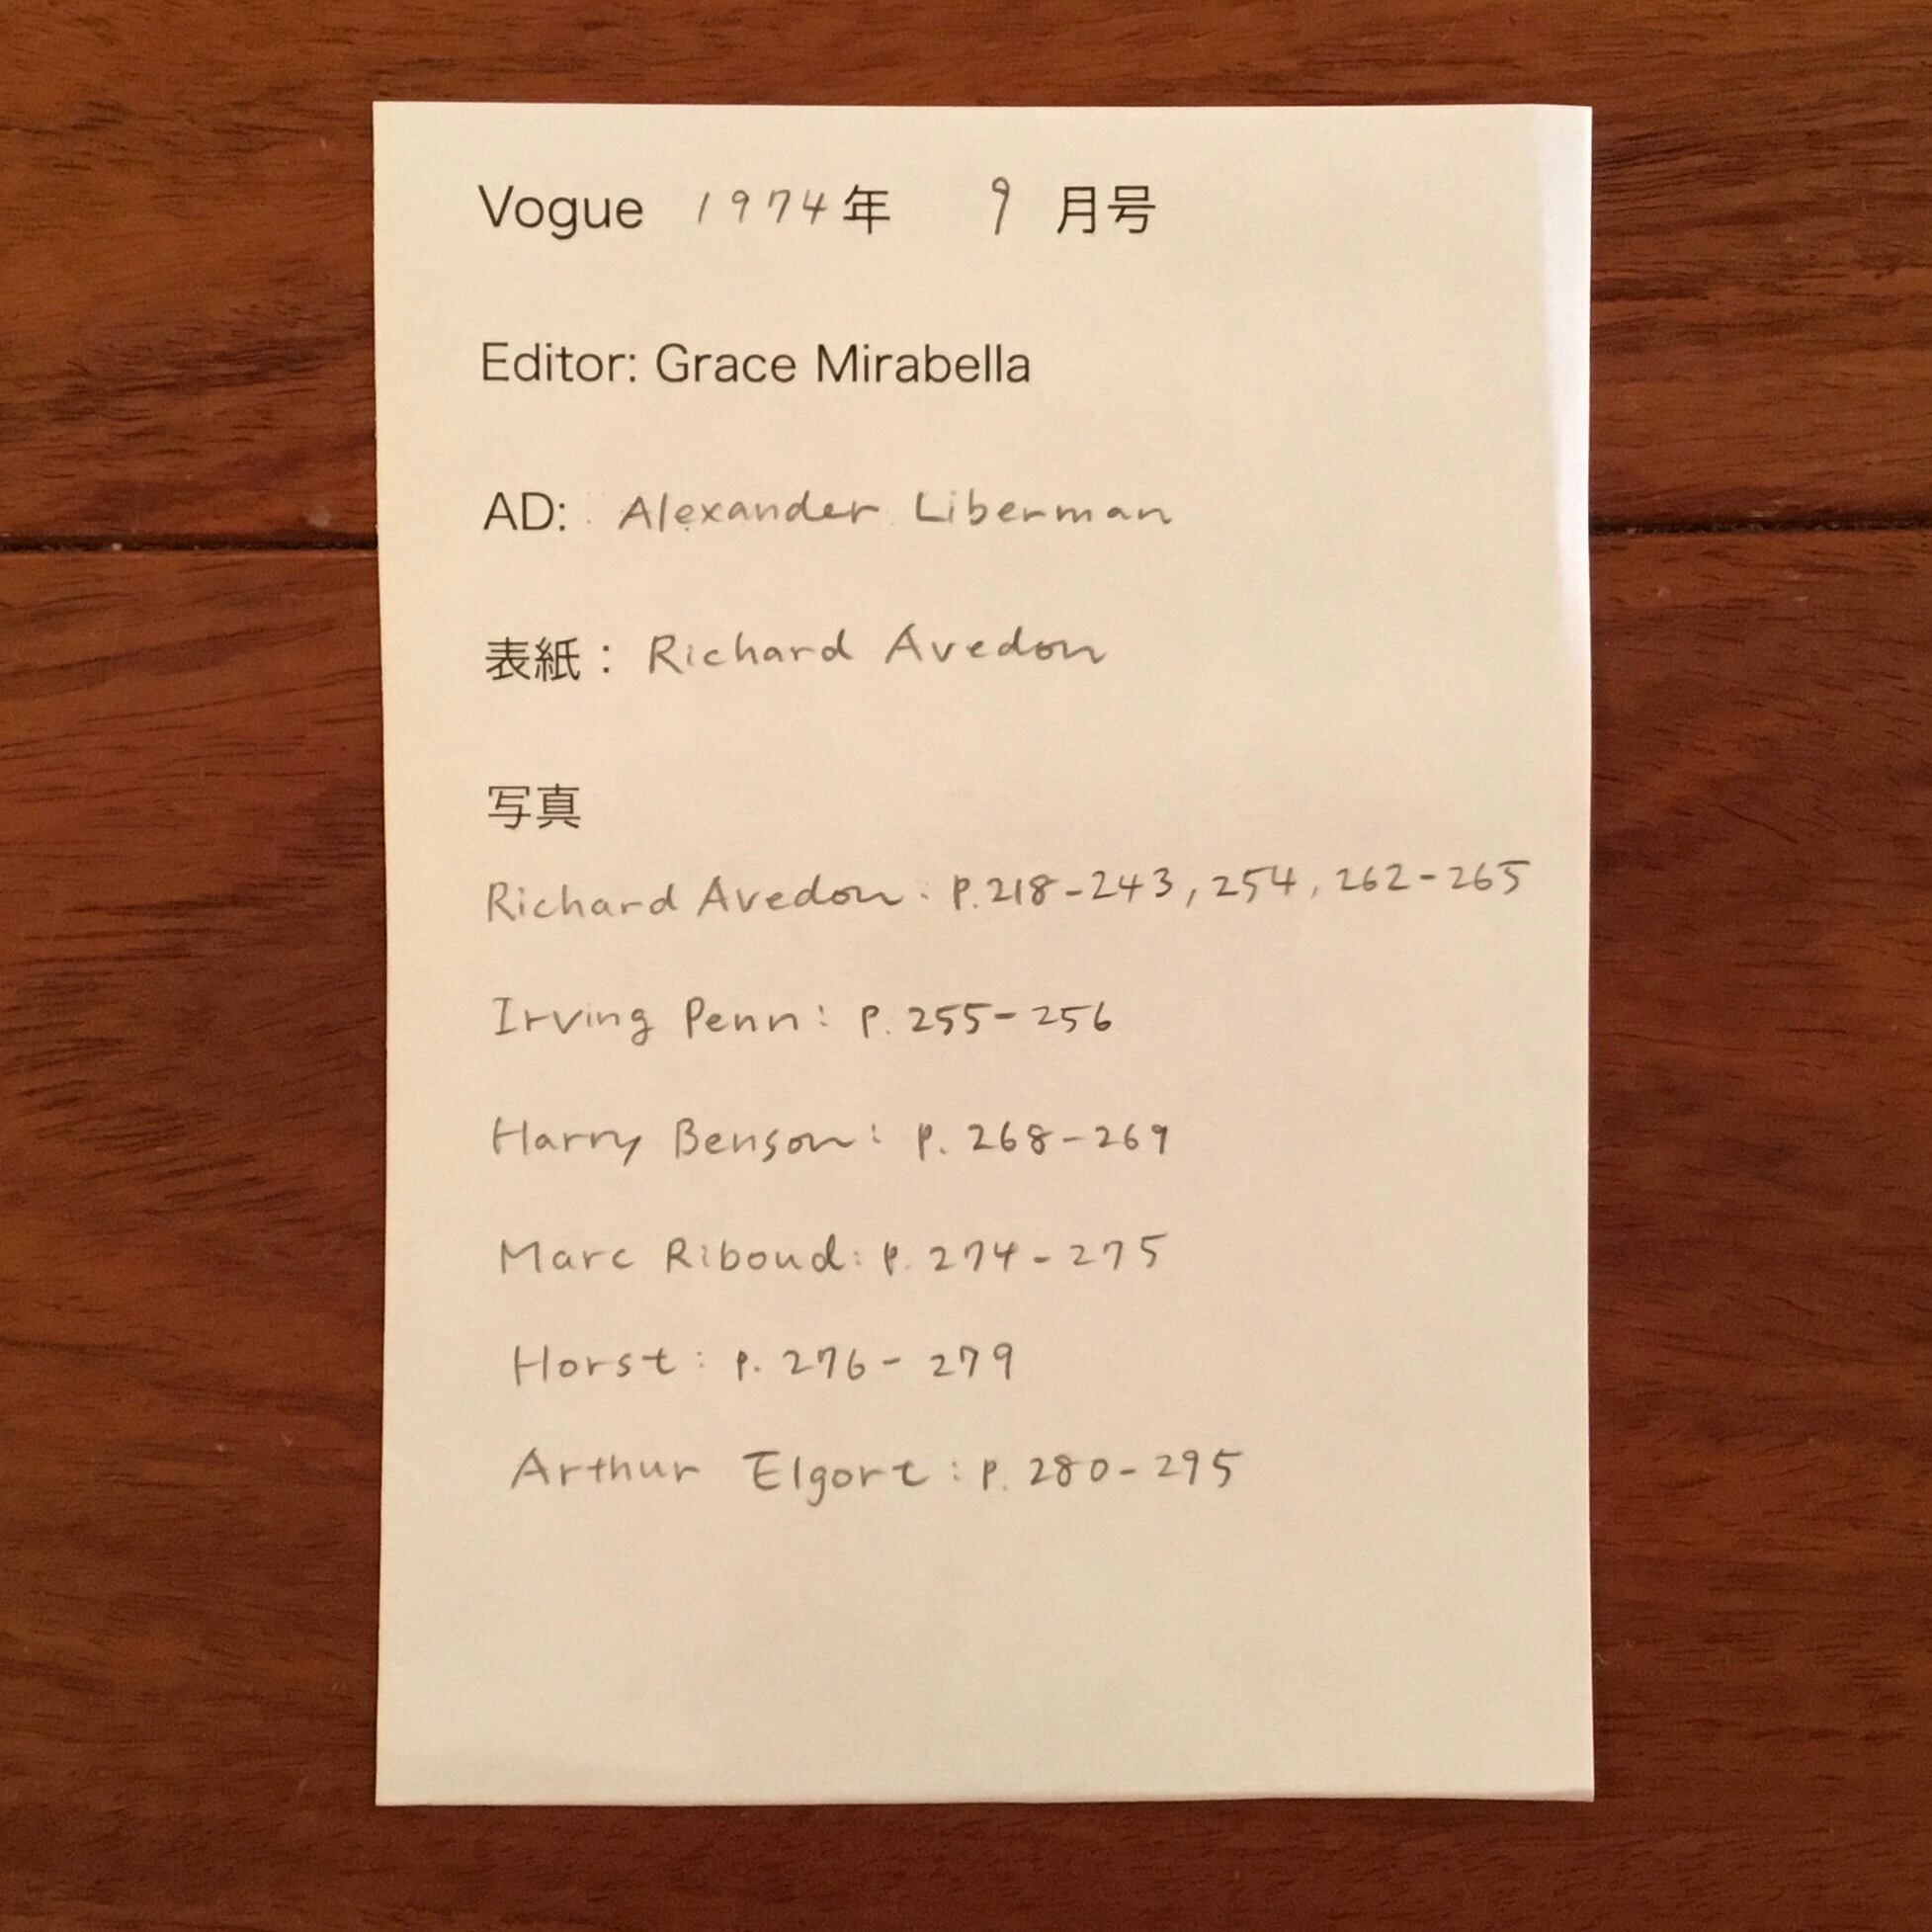 Vogue 1974年 9月号
Editor: Grace Mirabella
AD: Alexander Liberman
表紙： Richard Avedon
写真
Richard Avedon: p.218-243, 254, 262-265
Irving Penn: p. 255-256
Harry Benson: p. 268-269
Marc Riboud: p. 274-275
Horst: p. 276-279
Arthur Elgort: p. 280-295